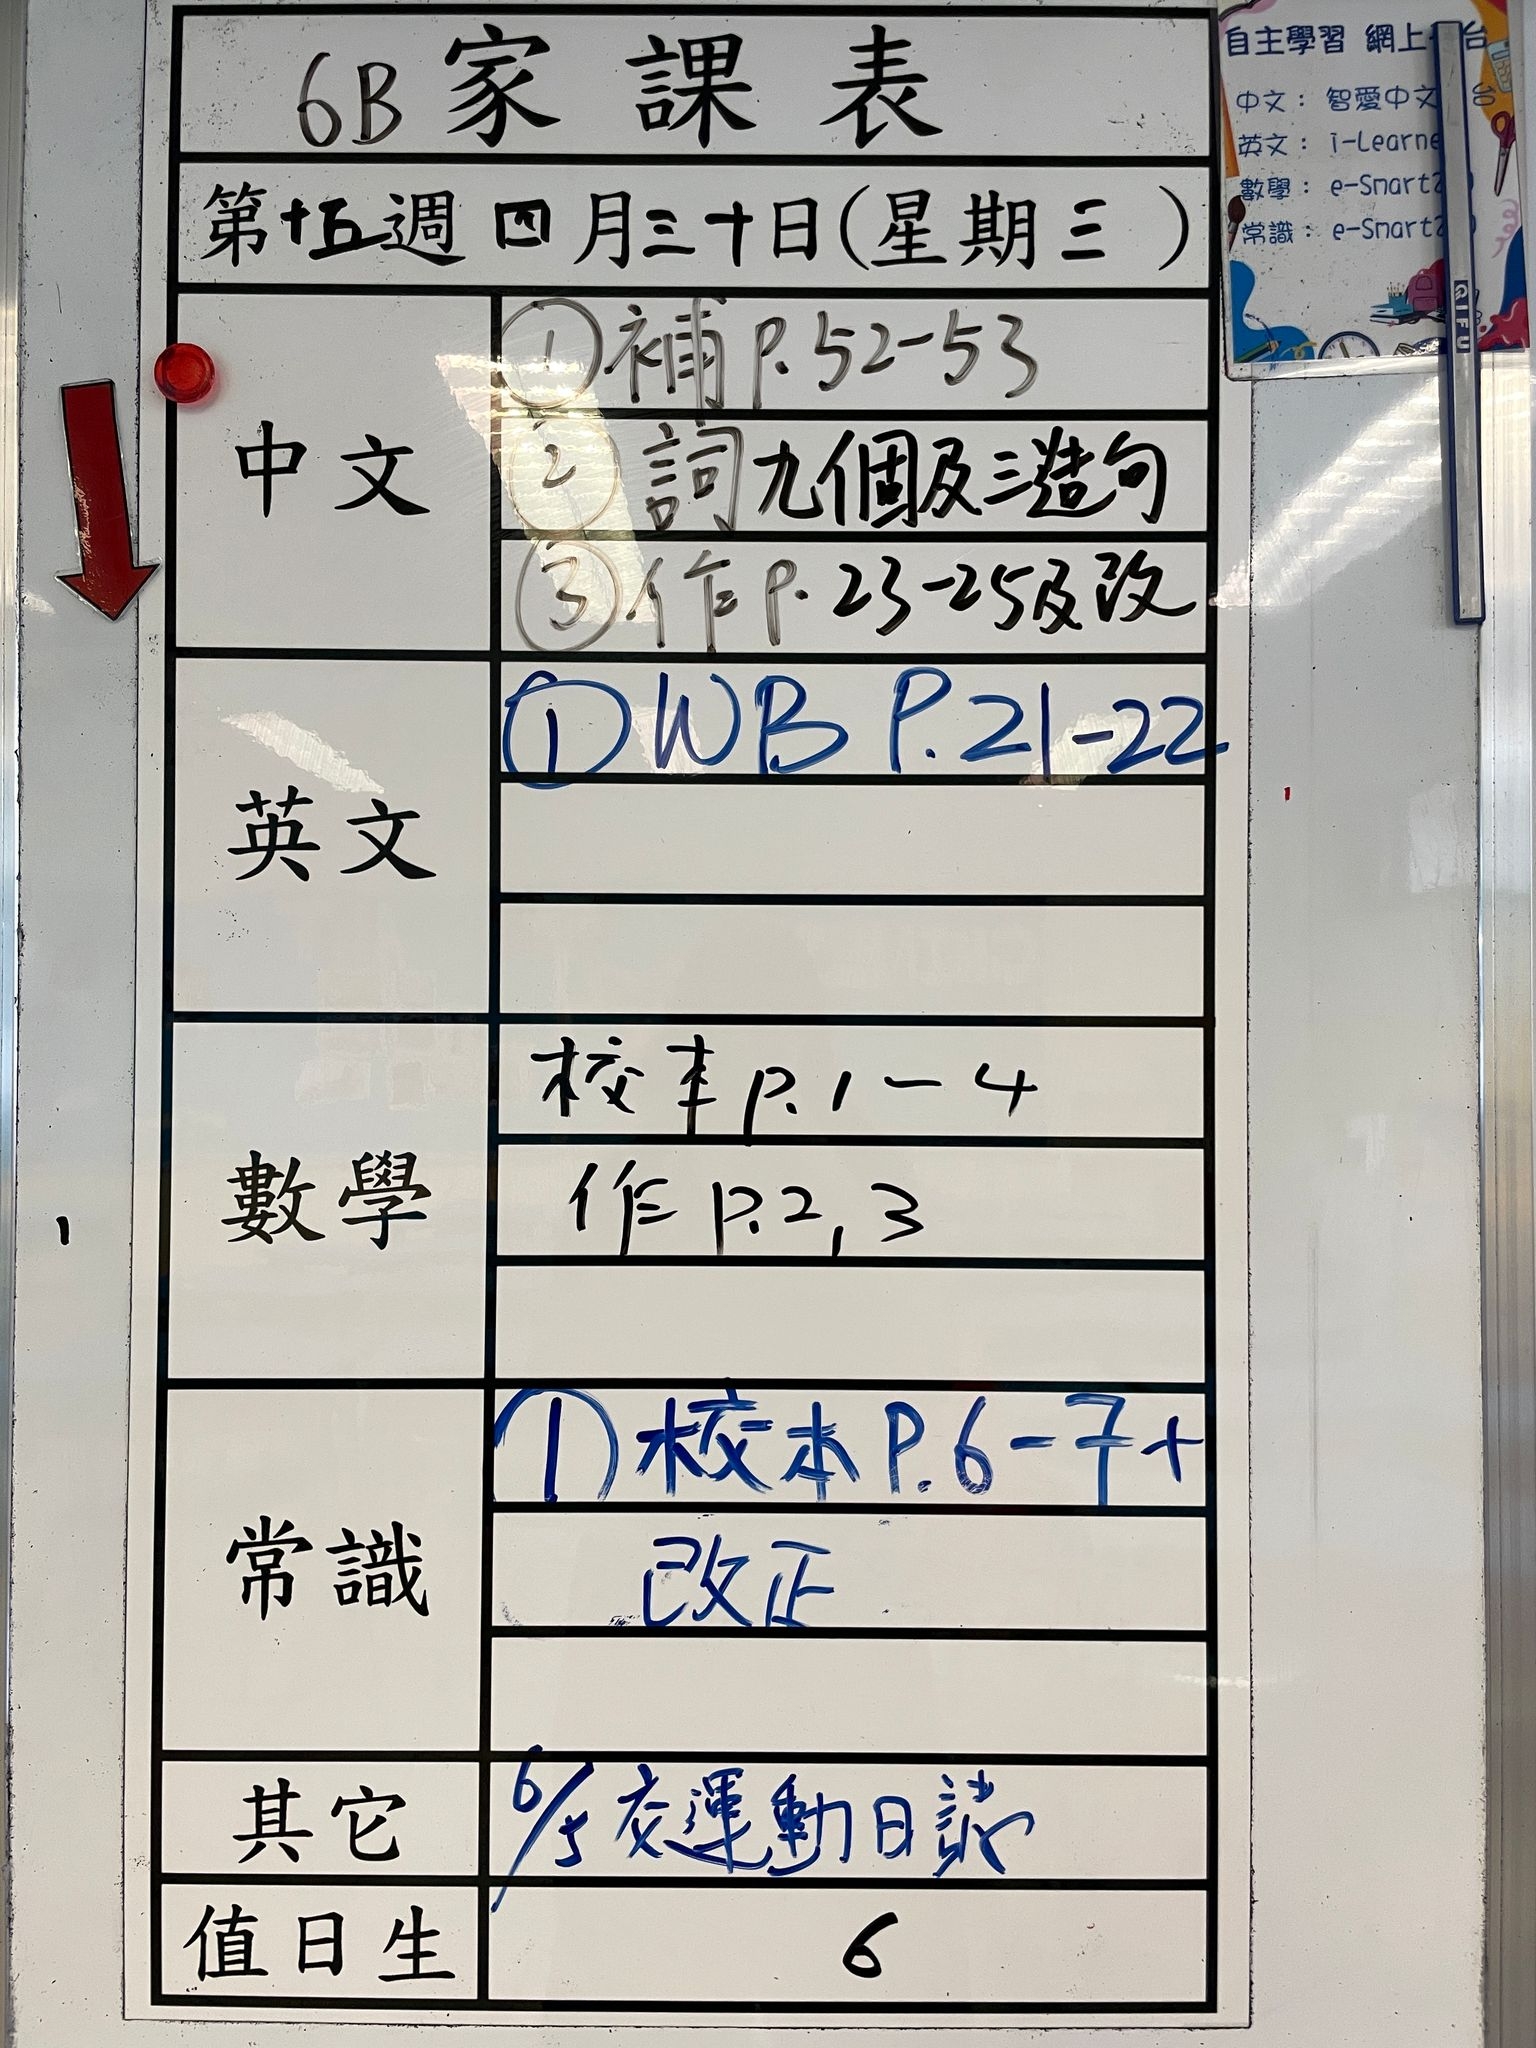 6B 家課表
第十五週 四月三十日(星期三)
中文
① 補 P.52-53
② 詞九個及三造句
③ 作 P.23-25及改
英文
① WB P.21-22
數學
校本 p.1-4
作 p.2,3
常識
① 校本 P.6-7+
改正
其它
6/5 交運動日誌
值日生
6
自主學習 網上
中文： 智愛中文
英文： i-Learne
數學： e-Smart
常識： e-Smart
QIFU